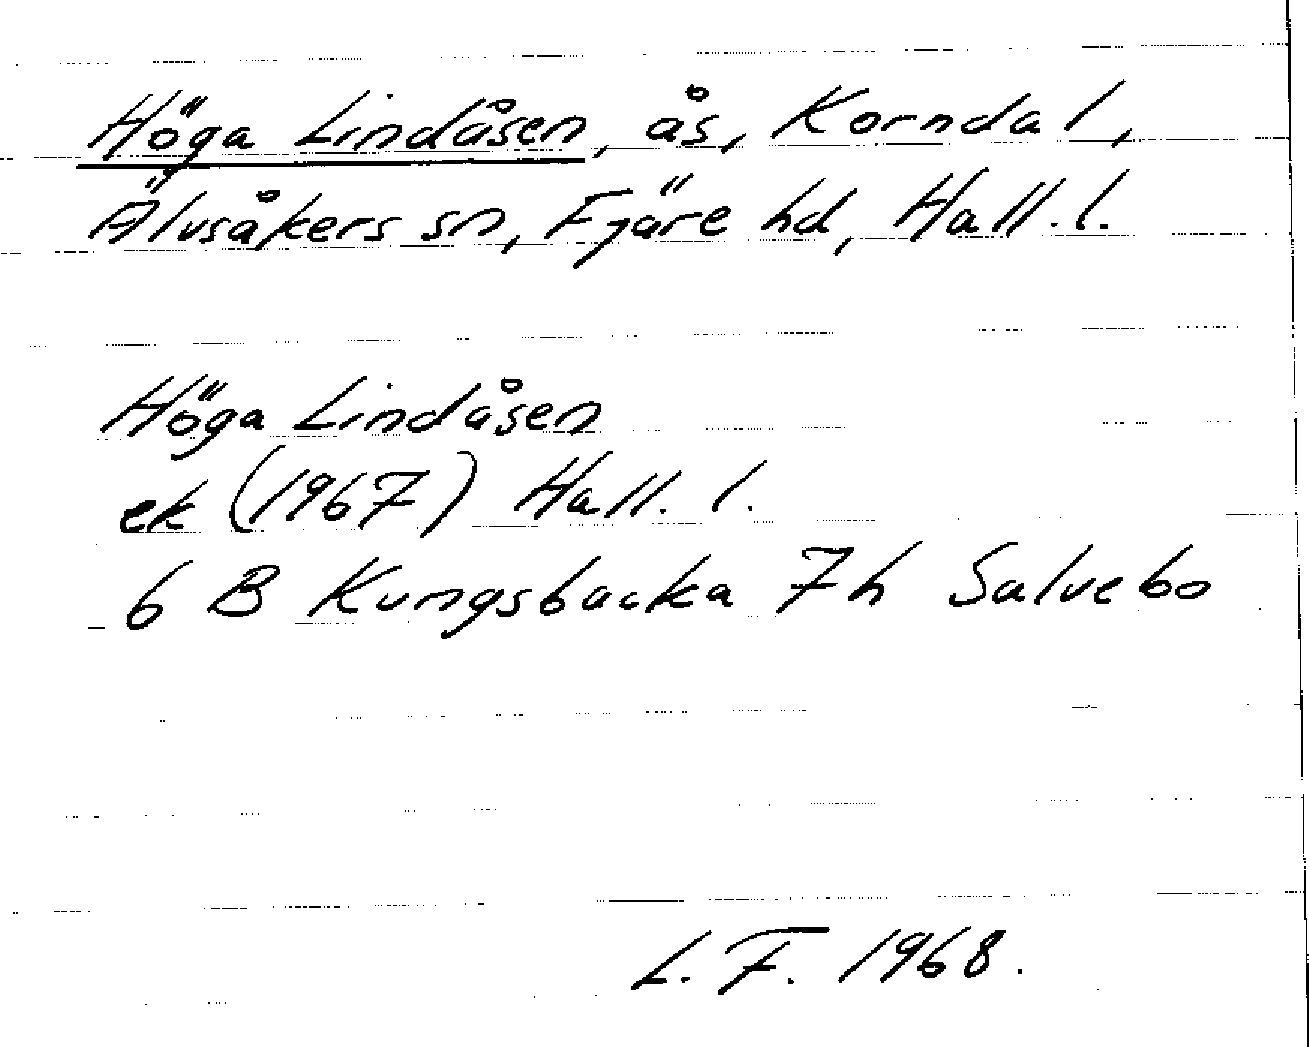 Höga Lindåsen, ås, Korndal,
Älvsåkers sn, Fjäre hd, Hall. l.
Höga Lindåsen
ek (1967) Hall. l.
6 B Kungsbacka 7h Salvebo
L. F. 1968.